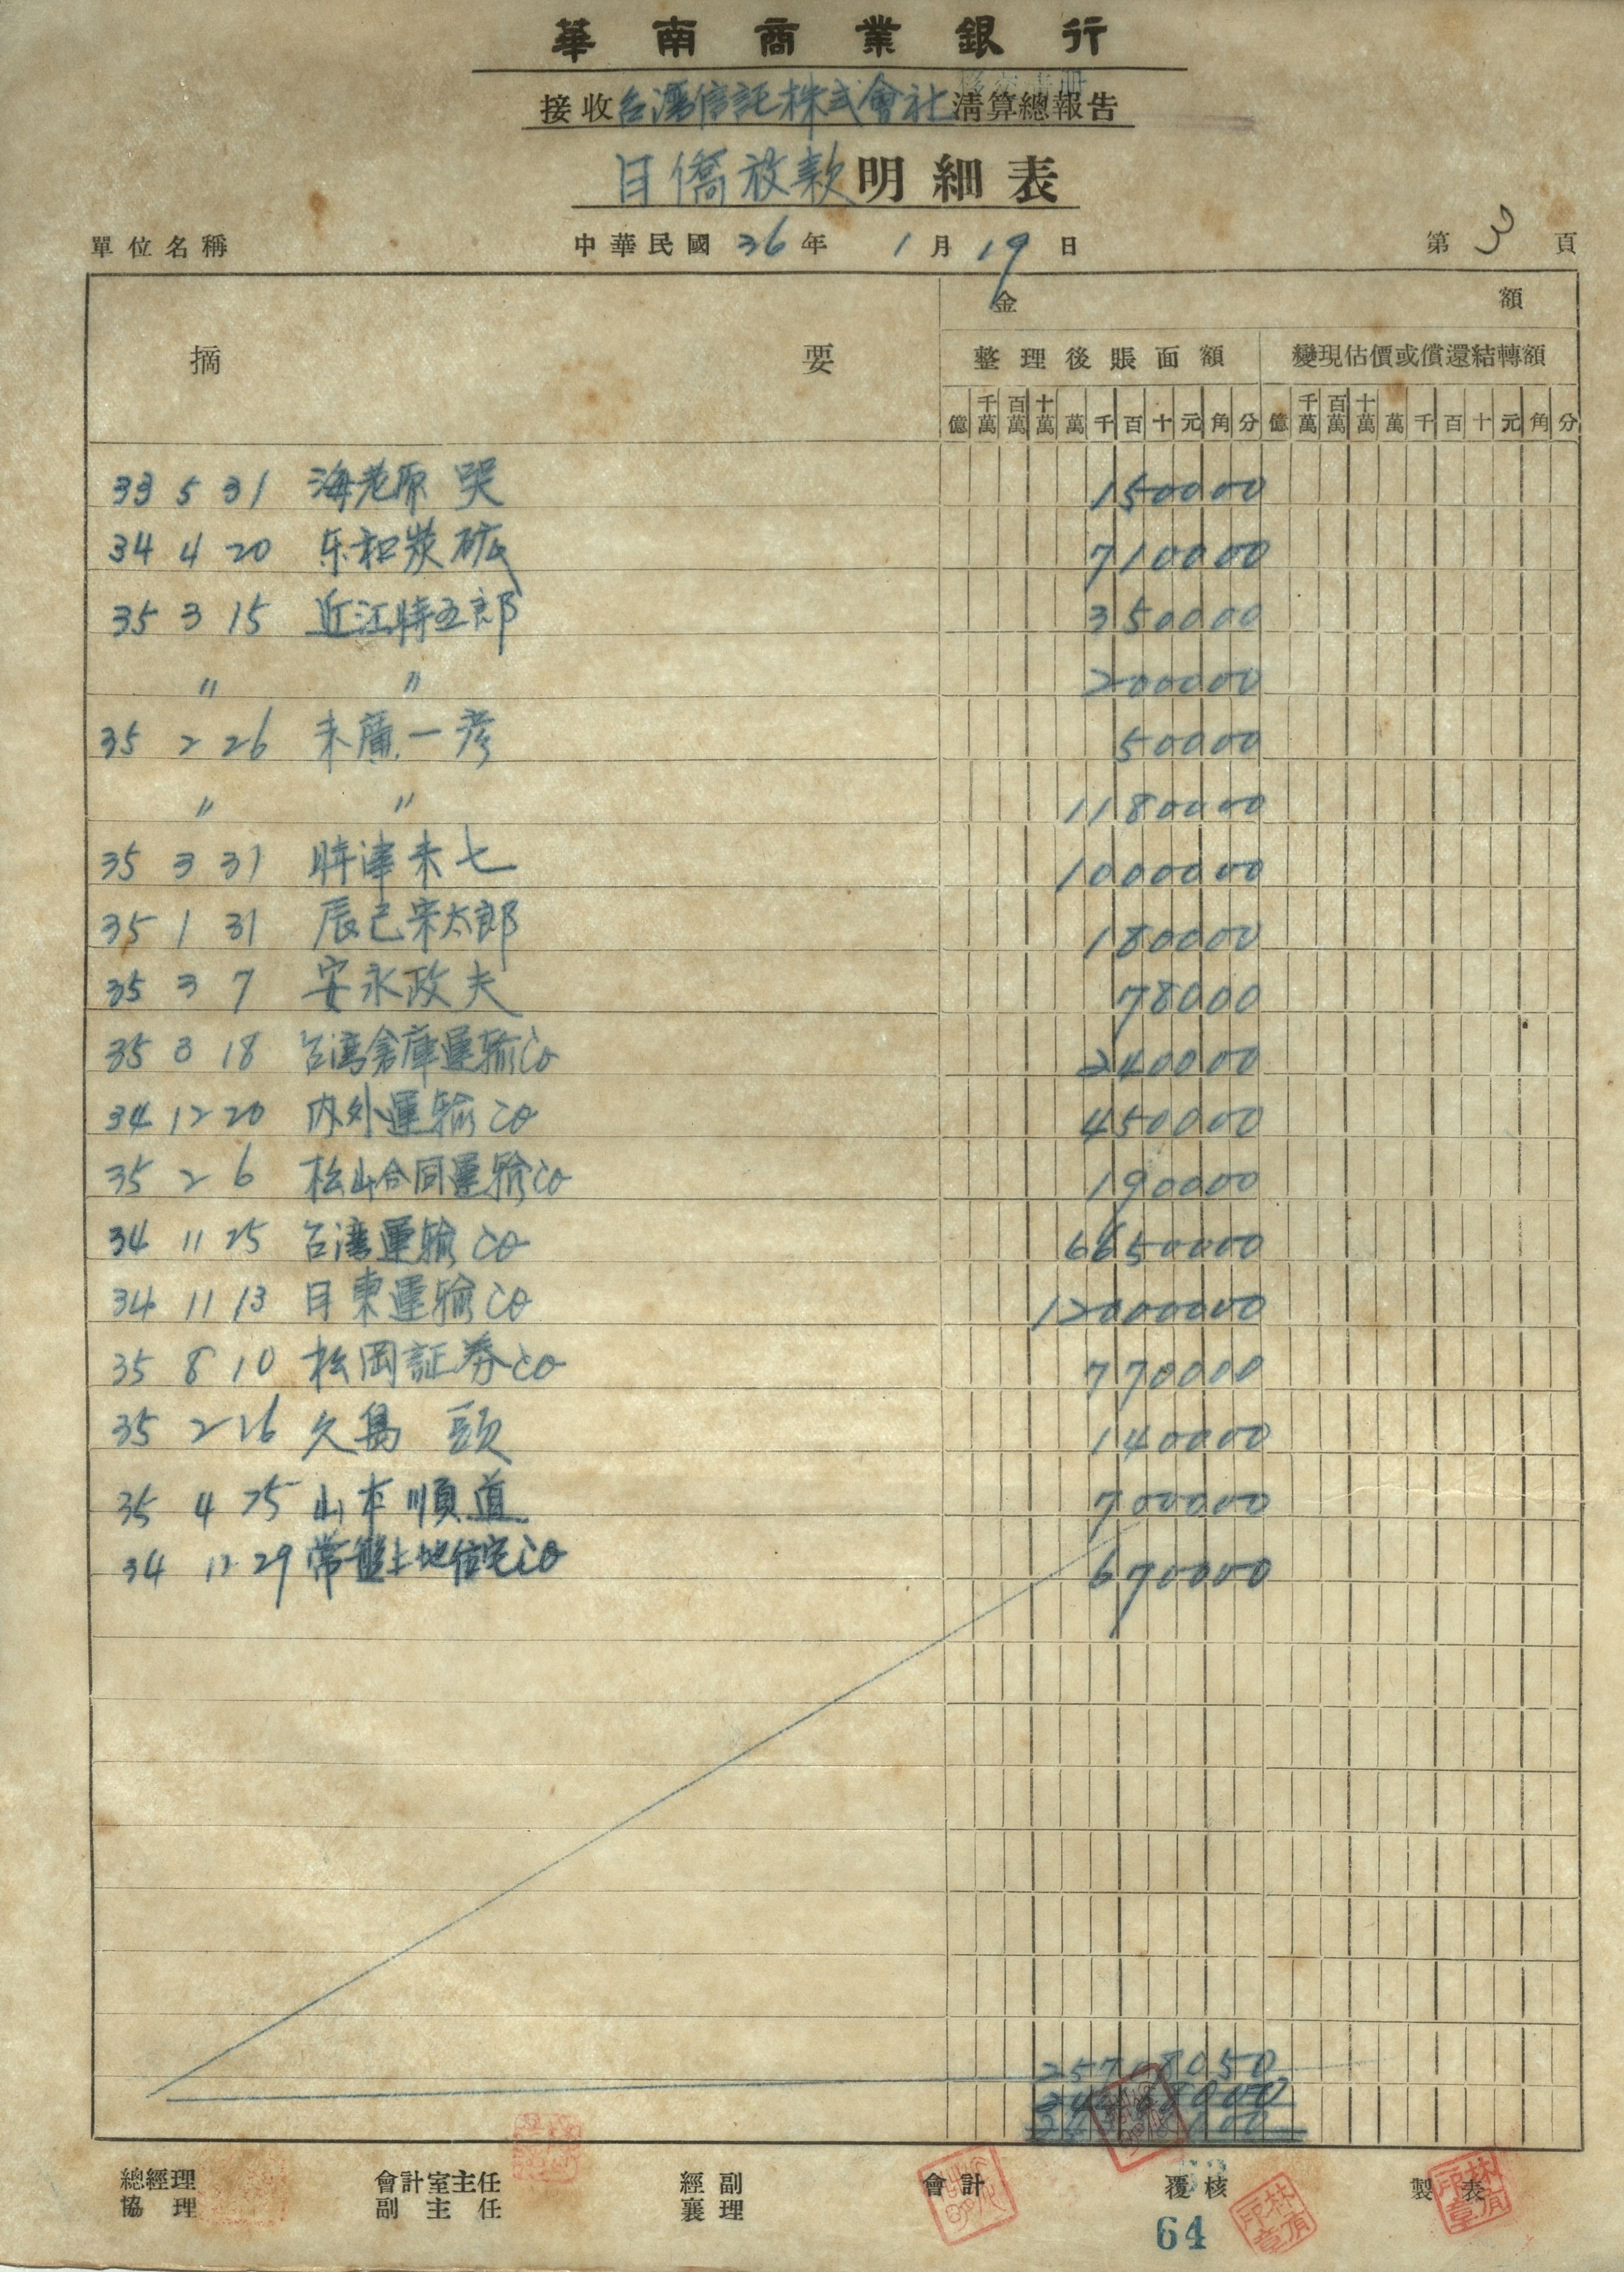 華南商業銀行
接收台灣信託株式會社清算總報告
日僑放款明細表
單位名稱 中華民國36年1月19日 第3頁
摘要 金額
整理後賬面額 變現估價或償還結轉額
億 千萬 百萬 十萬 萬 千 百 十 元 角 分 億 千萬 百萬 十萬 萬 千 百 十 元 角 分
33 5 31 海老原 150000
34 4 20 炭砿 710000
35 3 15 近江時五郎 350000
〃 〃 200000
35 2 26 末廣一彦 50000
〃 〃 1180000
35 3 31 津末七 1000000
35 1 31 辰己宗太郎 180000
35 3 7 安永政夫 78000
35 3 18 台湾倉庫運输Co 240000
34 12 20 内外運输Co 450000
35 2 6 松山合同運输Co 190000
34 11 25 台湾運输Co 6650000
34 11 13 日東運输Co 12000000
35 8 10 松岡証券Co 770000
35 2 26 久島 頭 140000
35 4 25 山本順道 700000
34 12 29 常盤土地住宅Co 670000
25708050
總經理 會計室主任 經副 會計 覆核 製表
協理 副主任 襄理
64